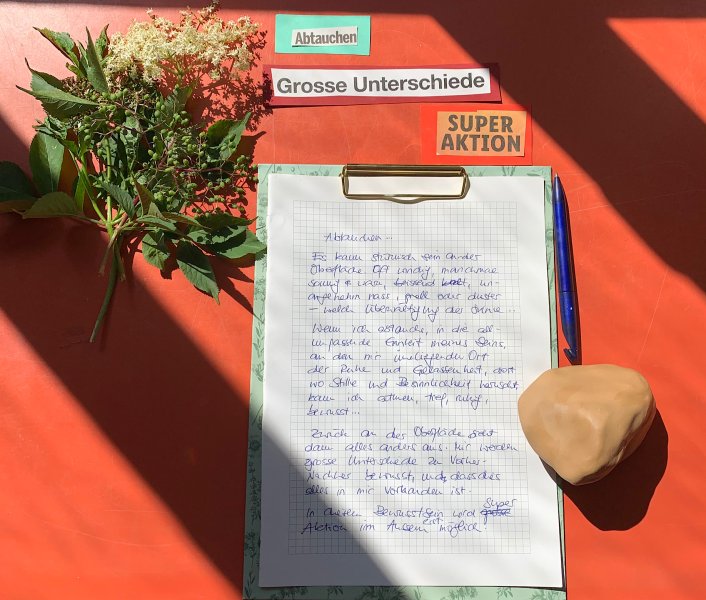 Abtauchen
Grosse Unterschiede
SUPER
AKTION
Abtauchen...
Es kann stürmisch sein an der
Oberfläche. Oft windig, manchmal
sonnig & warm, beissend kalt, un-
angenehm nass, grell oder düster
– welch Überwältigung der Sinne...
Wenn ich abtauche, in die all-
umfassende Einheit meines Seins,
an den mir innliegenden Ort
der Ruhe und Gelassenheit, dort
wo Stille und Besinnlichkeit herrscht
kann ich atmen, tief, ruhig,
bewusst...
Zurück an der Oberfläche sieht
dann alles anders aus. Mir werden
grosse Unterschiede zu Vorher-
Nachher bewusst, und dass dies
alles in mir vorhanden ist.
In diesem Bewusstsein wird Super
Aktion im Aussen erst möglich.